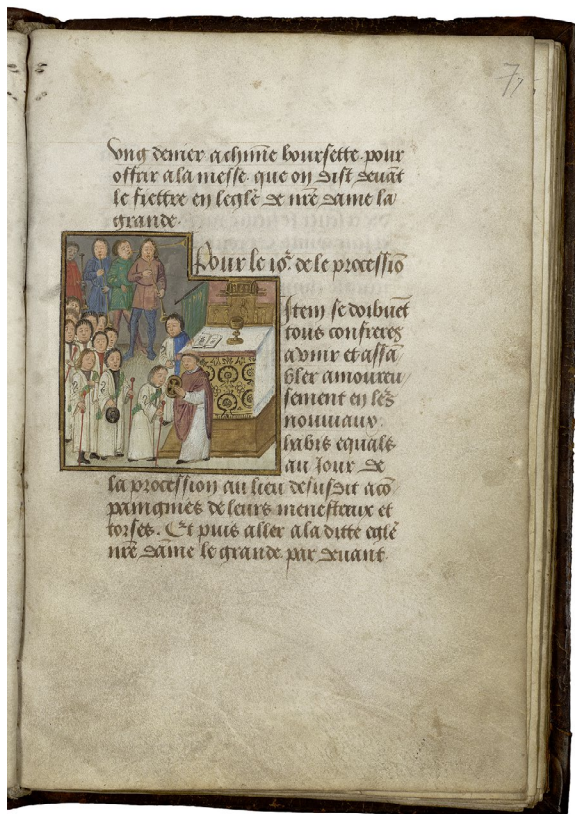 7
vng denier a chūne boursette pour
offrir a la messe que on dist deuāt
le fiettre en leglē de nrē dame la
grande.
Pour le ior de le processiō
Item se doibuēt
tous confreres
a vnir et assā
bler amoureu
sement en lēs
nouuiaux
habis equals
au Jour de
la procession au lieu desusdit acō
paingnies de leurs menestreux et
torses. Et puis aller a la ditte eglē
nrē dame le grande par deuant